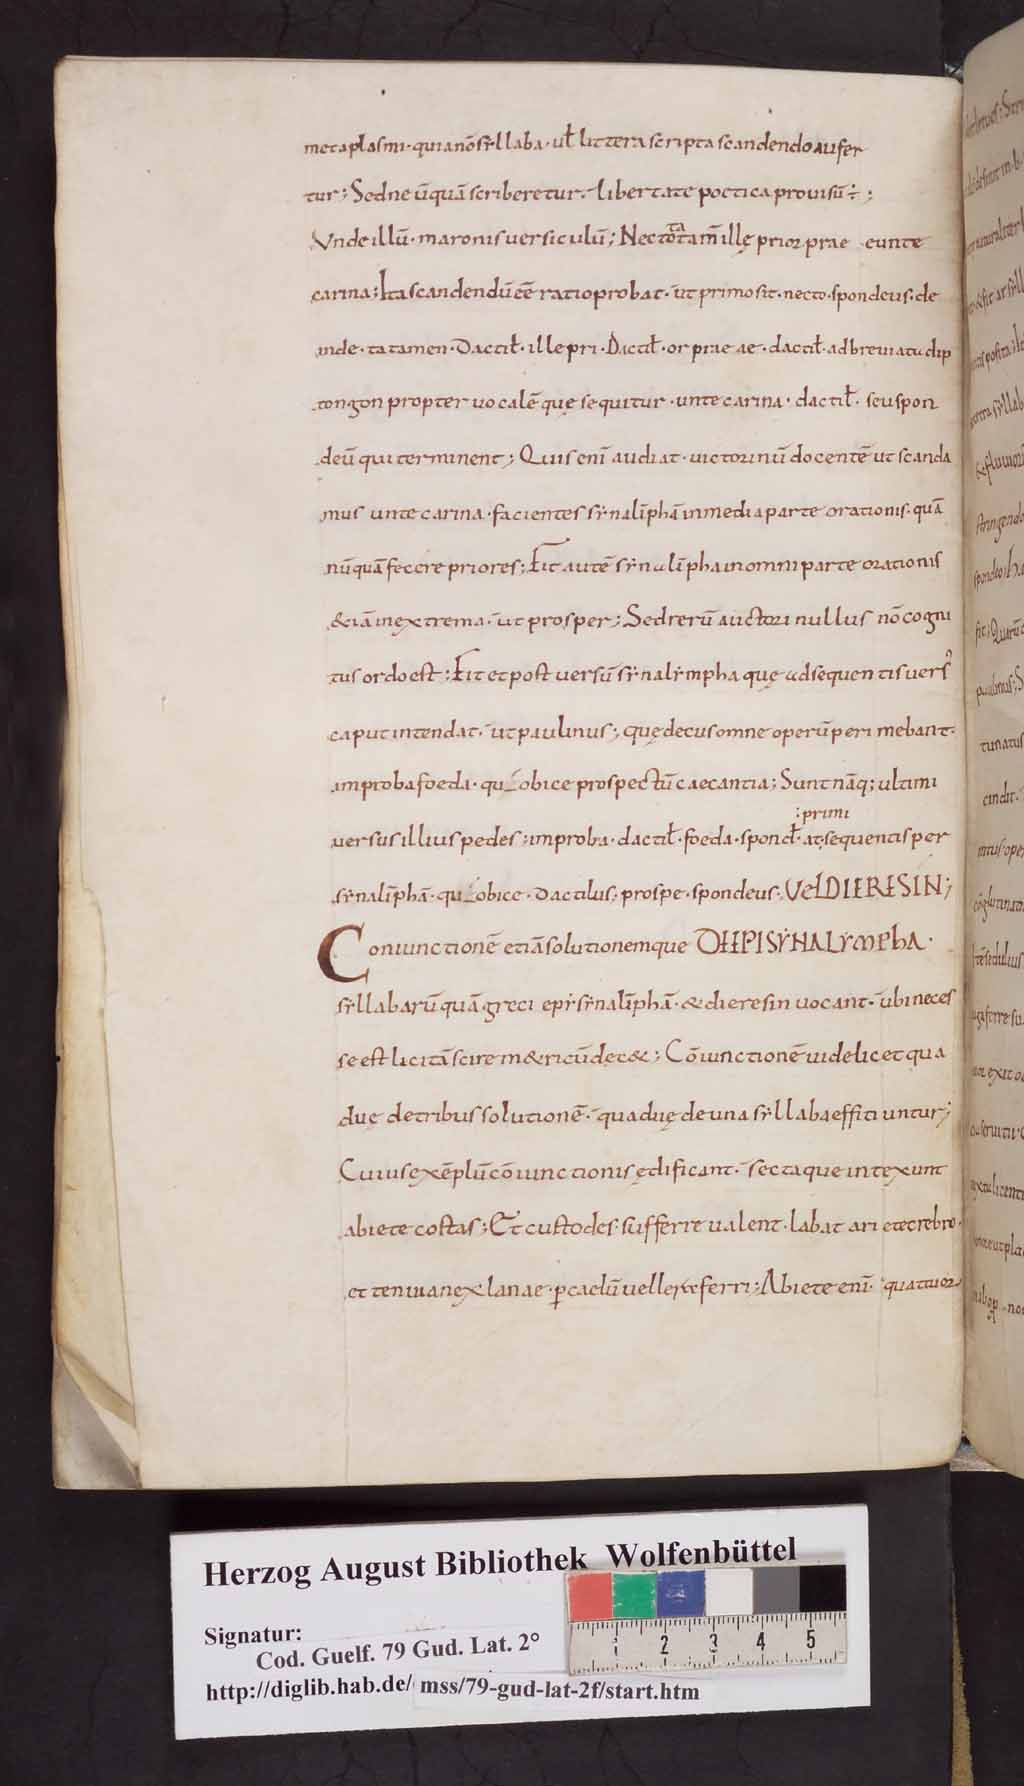 metaplasmi· quia nō syllaba· ut̄ littera scripta scandendo aufer
tur; Sed ne ūquā scriberetur· libertate poetica prouisū÷;
Vnde illū· maronis uersiculū; Nec tota tam̄ illę prior prae eunte
carina; Ita scandendū eē ratio probat· ut primo sit· necto· spondeus· de
inde· ta tamen· Dactil̄· ille pri· Dactil̄· or prae ae· dactil̄· adbreuiatu dip
tongon propter uocalē quę sequitur· unte carina· dactil̄· seu spon
deū qui terminent; Quis enī audiat· uictorinū docentē ut scanda
mus unte carina· facientes synalīphā in media parte orationis· quā
nūquā fecere priores; Fit autē synalīpha in omni parte orationis
& iā in extrema· ut prosper; Sed rerū auctori nullus nō cogni
tus ordo est; Fit et post uersū synalympha quę ad sequentis uers᾽
caput intendat· ut paulinus; quę decus omne operū perimebant·
improba foeda· quę obice prospectū caecantia; Sunt nāq; ultimi
:primi
uersus illius pedes; improba· dactil̄· foeda· spond̄· at· sequentis per
synalīphā· quę obice· dactilus; prospe· spondeus· Vel DIERESIN;
Coniunctionē etiā solutionemque DE EPISYNALYMPhA·
syllabarū quā greci epysynalīphā· & dieresin uocant· ubi neces
se est licitā scire m&ricū dec&; Cōiunctionē uidelicet qua
duę de tribus solutionē· qua duę de una syllaba effitiuntur;
Cuius exēplū cōiunctionis ędificant· sectaque intexunt
abiete costas; Et custodes sufferre ualent· labat ariete crebro·
et tenuia nex lanae· p̱ caelū uellere ferri; Abiete enī· quattuor
Herzog August Bibliothek Wolfenbüttel
Signatur:
Cod. Guelf. 79 Gud. Lat. 2°
http://diglib.hab.de/ mss/79-gud-lat-2f/start.htm
1 2 3 4 5